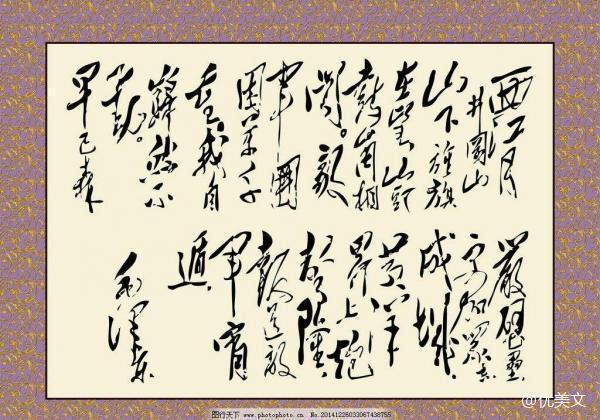 西江月
井岡山
山下旌旗
在望山頭
鼓角相
聞。敵
軍圍
困万千
重我自
巋然不
動。
早已森
嚴壁壘，
更加眾志
成城。
黃洋
界上炮
聲隆，
報道敵
軍宵
遁。
毛澤東
图行天下 www.photophoto.cn No.20141226033067438755
@优美文